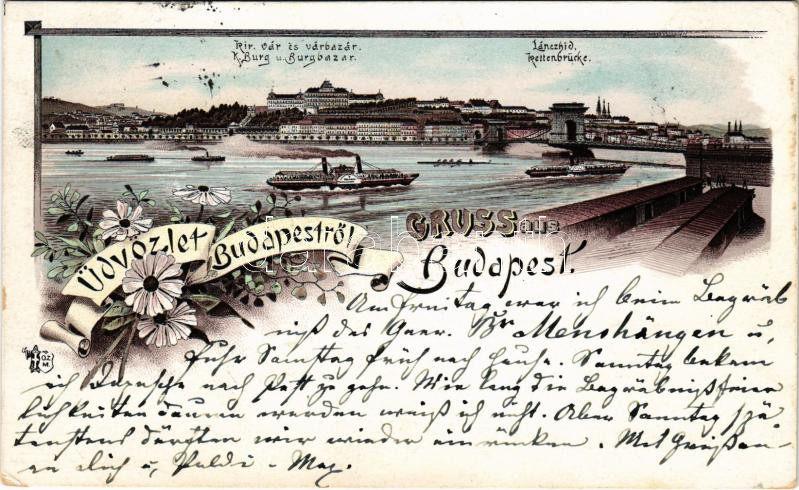 Kir. vár és várbazár.
K. Burg u. Burgbazar.
Lánczhid.
Kettenbrücke.
Üdvözlet Budapestről!
GRUSS aus
Budapest.
Am Freitag war ich beim Begräb
niß des Gener. Br Menshängen u,
fuhr Samstag früh nach Hause. Samstag bekam
ich Depesche nach Pest zu gehn. Wie lang die Begräbnißfeier
lichkeiten dauern werden weiß ich nicht. Aber Samstag spä
testens dürften wir wieder einrücken. Mit Grüßen
an dich u, Poldi - Max.